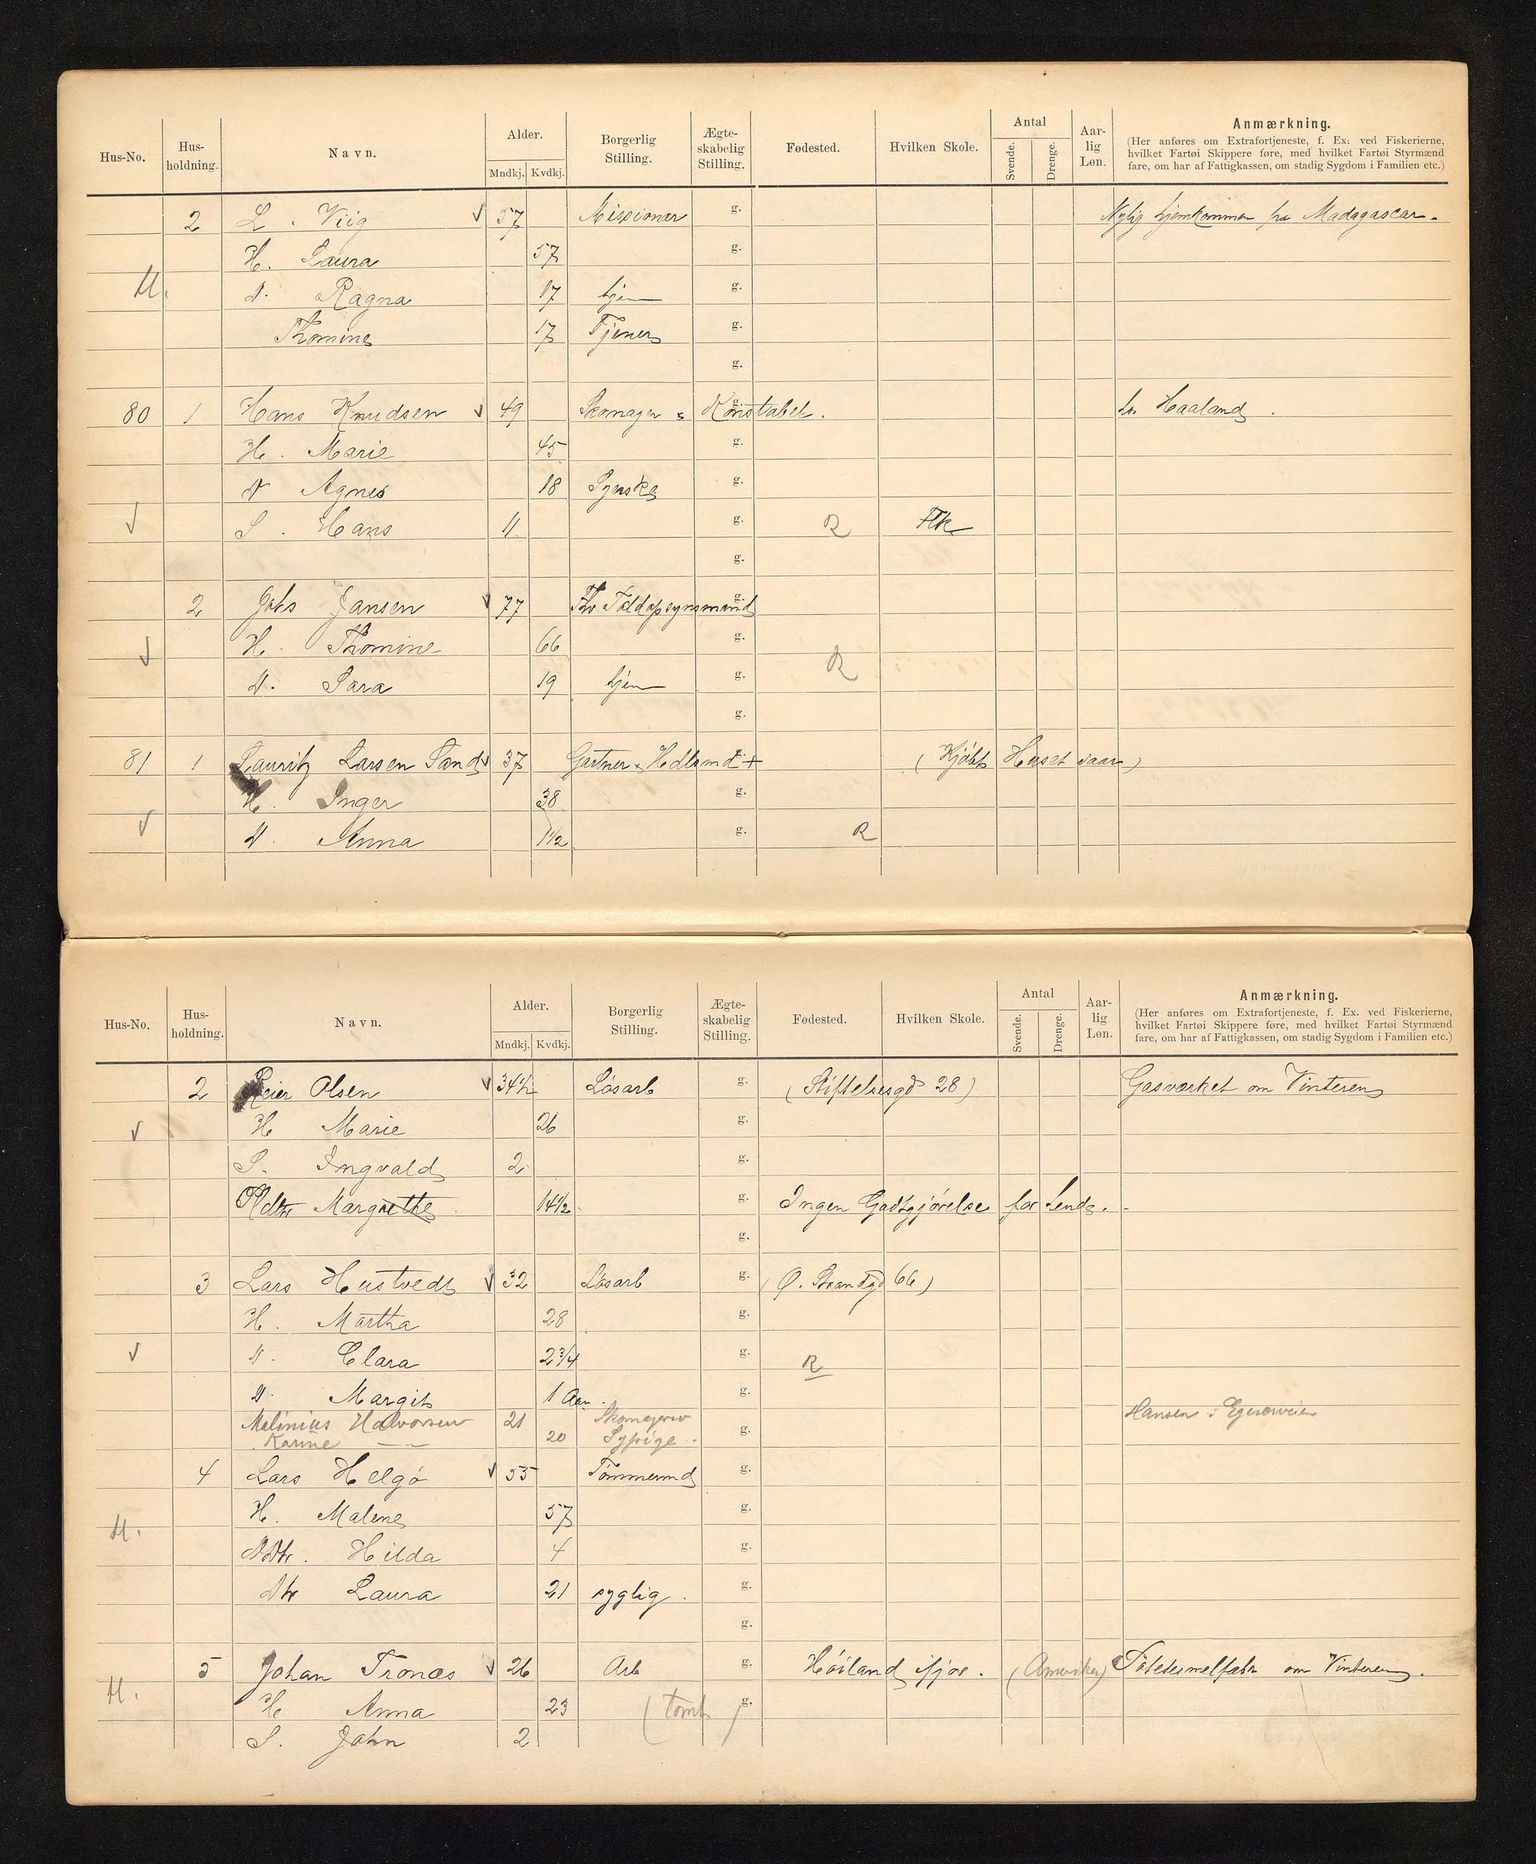 Hus-No. Hus-holdning. Navn. Alder. Mndkj. Kvdkj. Borgerlig Stilling. Ægte-skabelig Stilling. Fødested. Hvilken Skole. Antal Svende. Drenge. Aar-lig Løn. Anmærkning.
(Her anføres om Extrafortjeneste, f. Ex: ved Fiskerierne,
hvilket Fartøi Skippere føre, med hvilket Fartøi Styrmænd
fare, om har af Fattigkassen, om stadig Sygdom i Familien etc.)
2 L. Viig √ 57 Missionær g. Nylig hjemkommen fra Madagascar.
H. Laura 57 g.
M. D. Ragna 17 hjem g.
Thomine 17 Tjener g.
g.
80 1 Hans Knudsen √ 49 Skomager & Konstabel. g. hos Haaland.
H. Marie 45 g.
D Agnes 18 Syerske g.
√ S. Hans 11 g. R Flk
g.
2 Jansen √ 77 Fhv Toldopsynsmand g.
√ H. Thomine 66 g.
D. Sara 19 hjem g. R
g.
81 1 Lauritz Larsen Sand √ 37 Gartner & Hdlsmd + g. (Kjøbt Huset iaar)
H. Inger 38 g.
√ D. Anna 1 1/2 g. R
Hus-No. Hus-holdning. Navn. Alder. Mndkj. Kvdkj. Borgerlig Stilling. Ægte-skabelig Stilling. Fødested. Hvilken Skole. Antal Svende. Drenge. Aar-lig Løn. Anmærkning.
(Her anføres om Extrafortjeneste, f. Ex. ved Fiskerierne,
hvilket Fartøi Skippere føre, med hvilket Fartøi Styrmænd
fare, om har af Fattigkassen, om stadig Sygdom i Familien etc.)
2 Reier Olsen √ 34 1/2 Løsarb g. (Stiftelsesgd 28) Gasværket om Vinteren
√ H Marie 26 g.
S. Ingvald 2 g.
Pldtr Margrethe 14 1/2 g. Ingen Godtgjørelse for hende.
g.
3 Lars Hustvedt √ 32 Løsarb g. (Ø. Strandgd 66)
H. Martha 28 g.
√ D. Clara 2 3/4 g. R
D. Margit 1 Aar. g.
Malinius Halvorsen 21 Skomagersv Hansen i Egenesveien
Karine — — 20 Sypige. g.
4 Lars Helgø √ 55 Tømmermd g.
M. H. Malene 57 g.
Ddtr. Hilda 4 g.
Dtr Laura 21 syglig. g.
g.
5 Johan Tronæs √ 26 Arb g. Høiland ifjor. (Amerika) om Vinteren.
M. H Anna 23 (tomt) g.
S. John 2